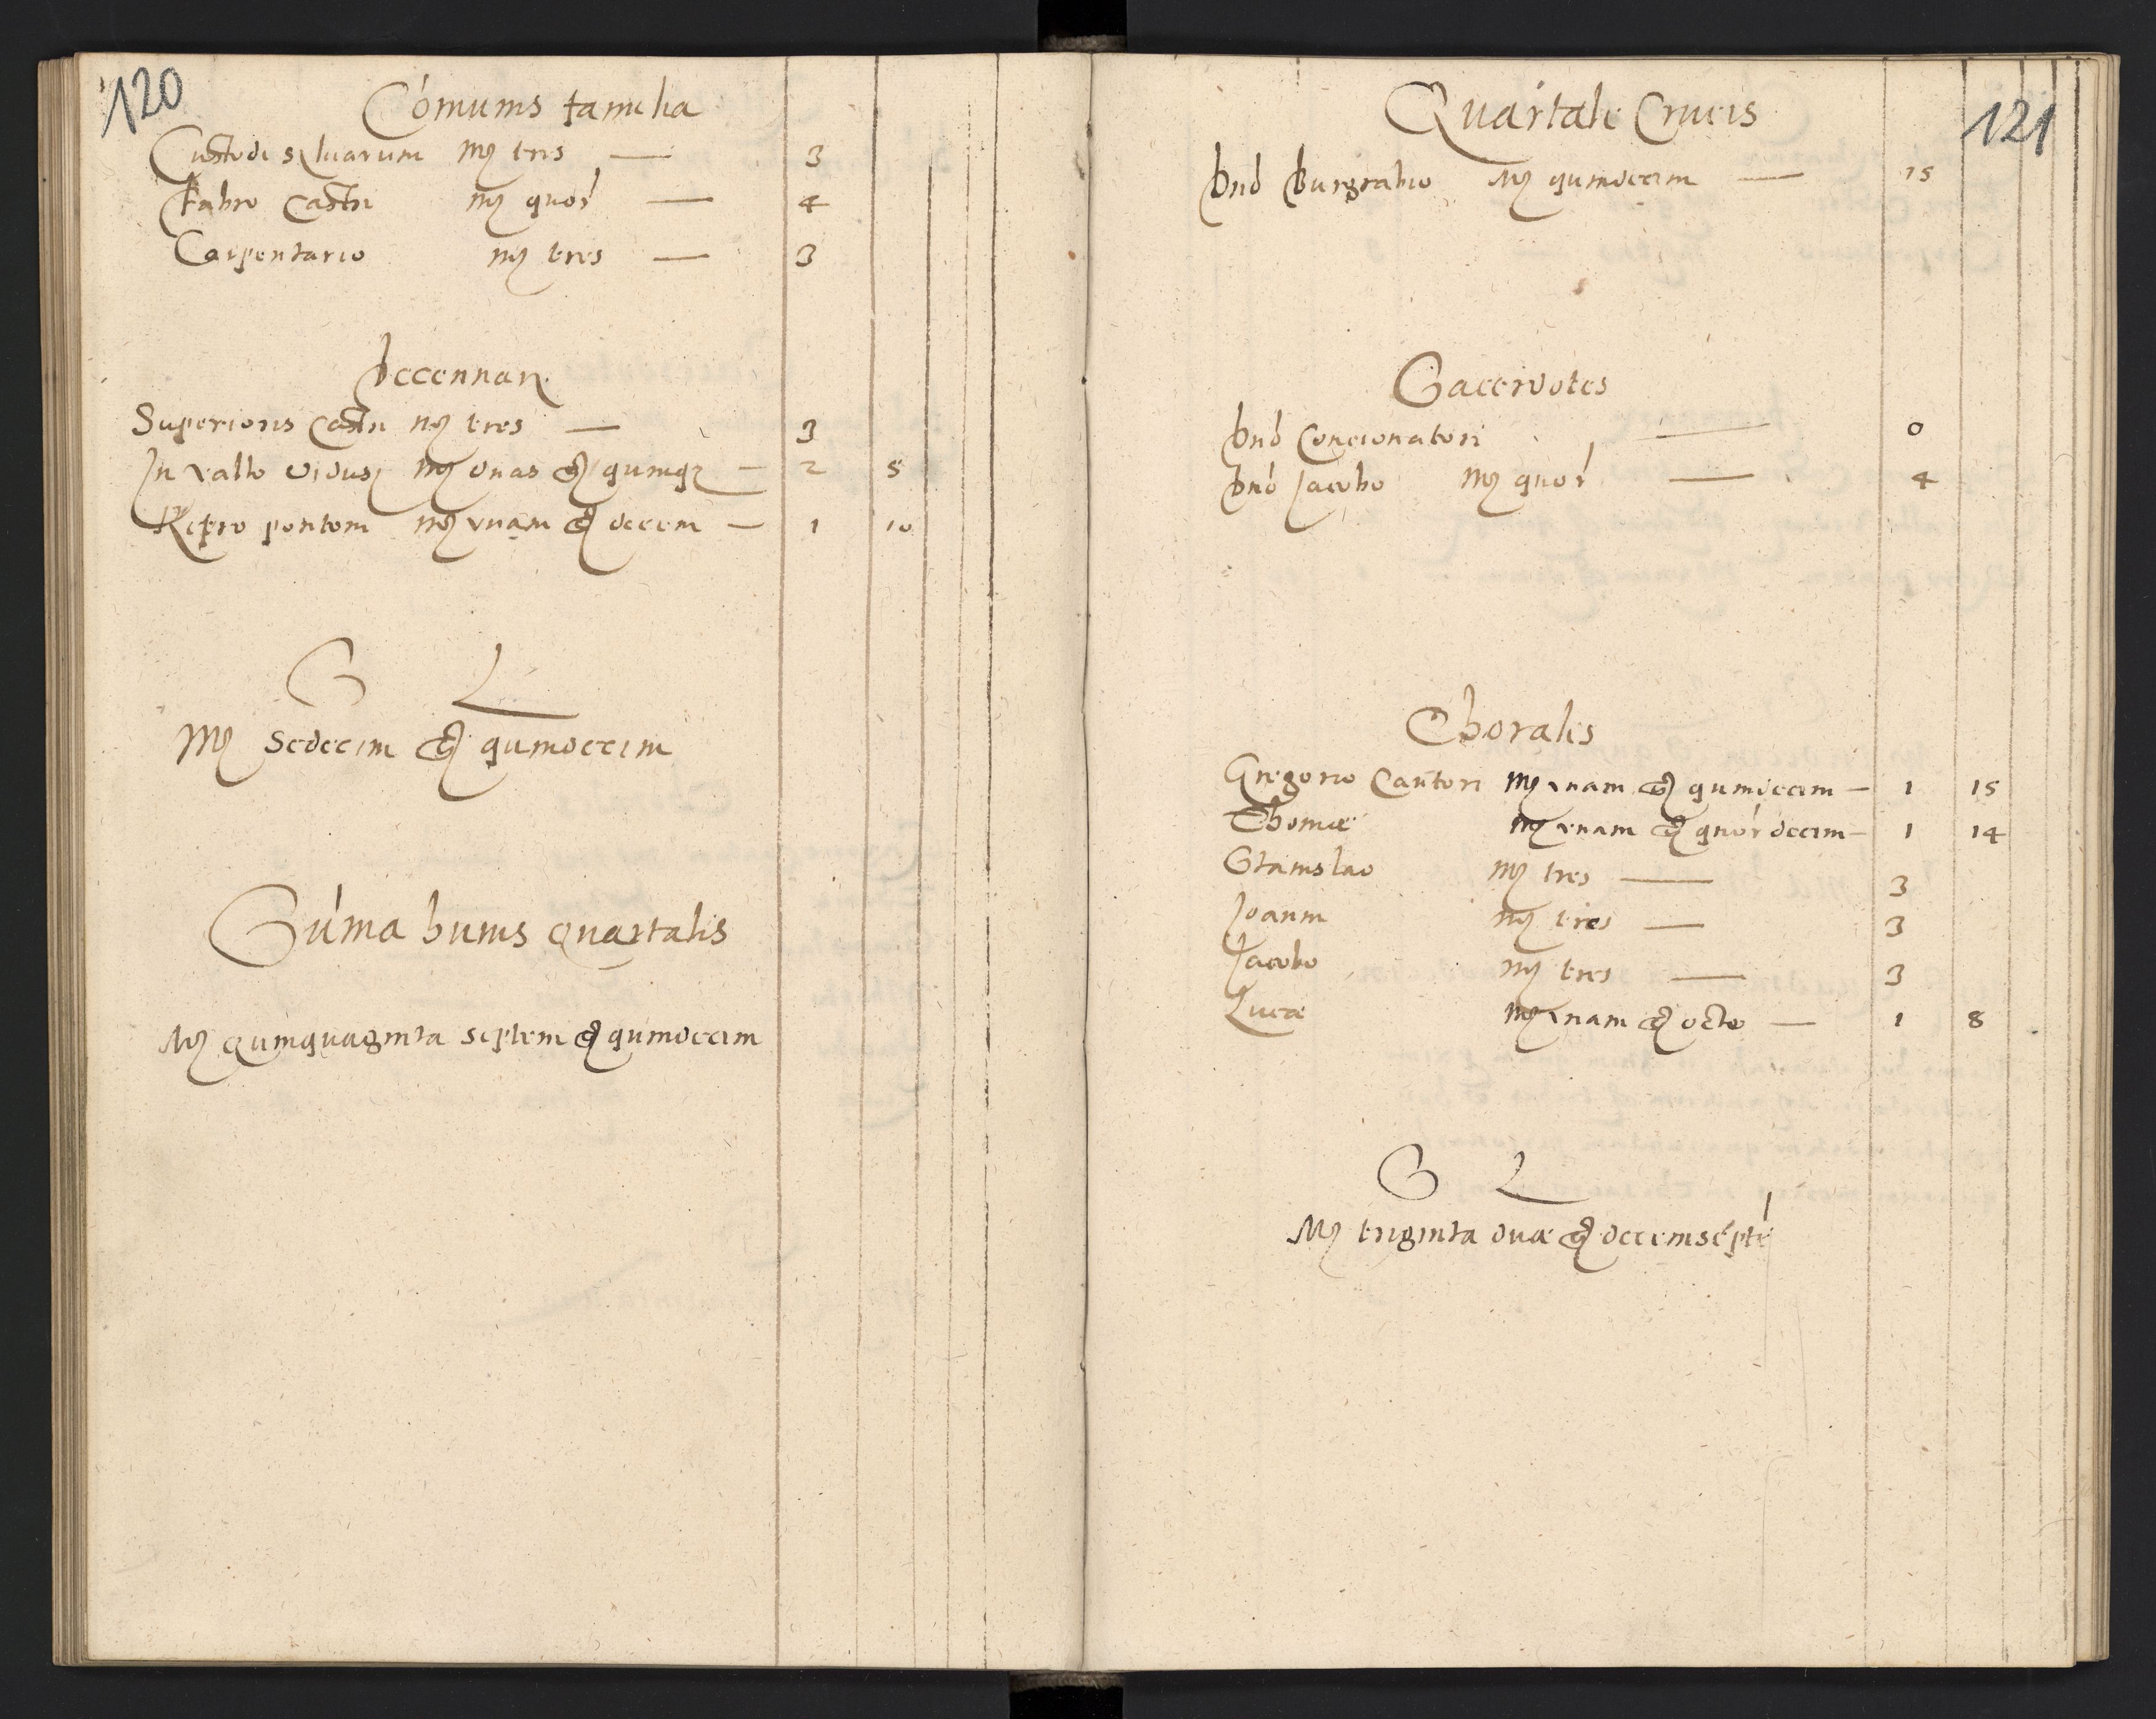 120
Co̅munis familia
Custodi syluarum Mͬ tres — 3
Fabro Castri mͬ quor̛ — 4
Carpentario mͬ tres — 3
Decennarij
Superioris Castri mͬ tres — 3
In vallo mͬ duas gͬ quinqȝ — 2 5
Retro pontem mͬ vnam gͬ decem — 1 10
S L
Mͬ Sedecim gͬ quindecim
Su̅ma huius quartalis
Mͬ quinquaginta septem gͬ quindecim
121
Quartale Crucis
Dno̅ Burgrabio Mͬ quindecim — 15
Sacerdotes
Dno̅ Concionatori — 0
Dno̅ Jacobo Mͬ quor̛ — 4
Choralis
Gregorio Cantori Mͬ vnam gͬ quindecim — 1 15
Thomæ Mͬ vnam gͬ quor̛decim — 1 14
Stanislao Mͬ tres — 3
Joanni mͬ tres — 3
Jacobo mͬ tres — 3
Lucæ Mͬ vnam gͬ octo — 1 8
S L
Mͬ triginta duæ gͬ decemsépte̅